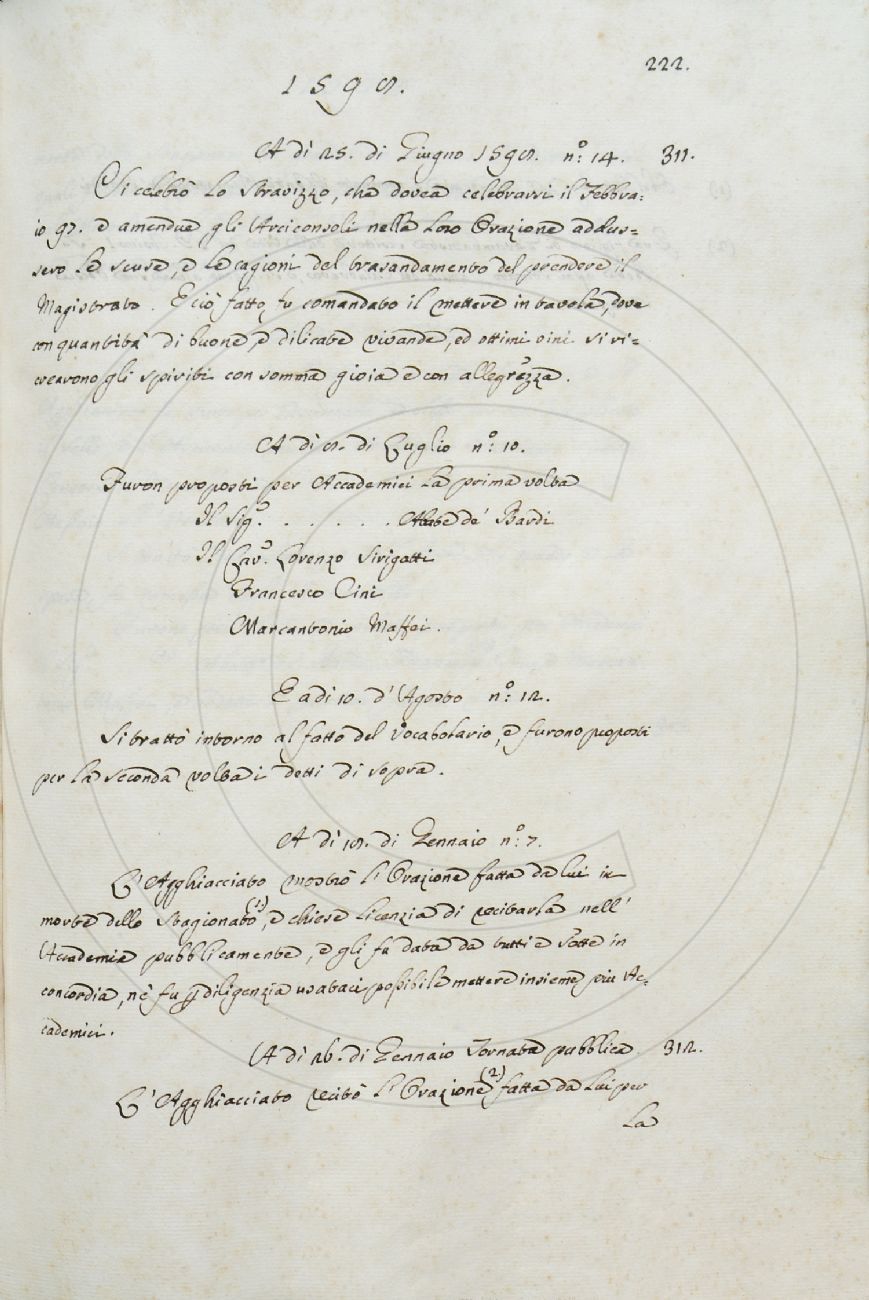 222.
1598.
A dì 25. di Giugno 1598. n°: 14. 311.
Si celebrò lo Stravizzo, che dovea celebrarsi il Febbra:
io 97. e amendue gli Arciconsoli nella loro Orazione addus=
sero le scuse, e le cagioni del trasandamento del prendere il
Magistrato. E ciò fatto, fu comandato il mettere in tavola, dove
con quantità di buone, e dilicate vivande, ed ottimi vini si ri=
crearono gli spiriti con somma gioia e con allegrezza.
A dì 8. di Luglio n°: 10.
Furon proposti per Accademici la prima volta
Il Sig.e . . . . . . Abate de' Bardi
Il Cav.e Lorenzo Sirigatti
Francesco Cini
Marcantonio Maffei.
E a dì 10. d'Agosto n°: 12.
Si trattò intorno al fatto del Vocabolario, e furono proposti
per la seconda volta i detti di sopra.
A dì 18. di Gennaio n°: 7.
L'Agghiacciato mostrò l'Orazione fatta da lui in
morte dello Stagionato (1.), e chiese licenzia di recitarla nell'
Accademia pubblicamente, e gli fu data da tutti e sette in
concordia, nè fu p diligenzia usataci possibile mettere insieme più Ac=
cademici.
A dì 26. di Gennaio Tornata pubblica 312.
L'Agghiacciato recitò l'Orazione (2.) fatta da lui per
la